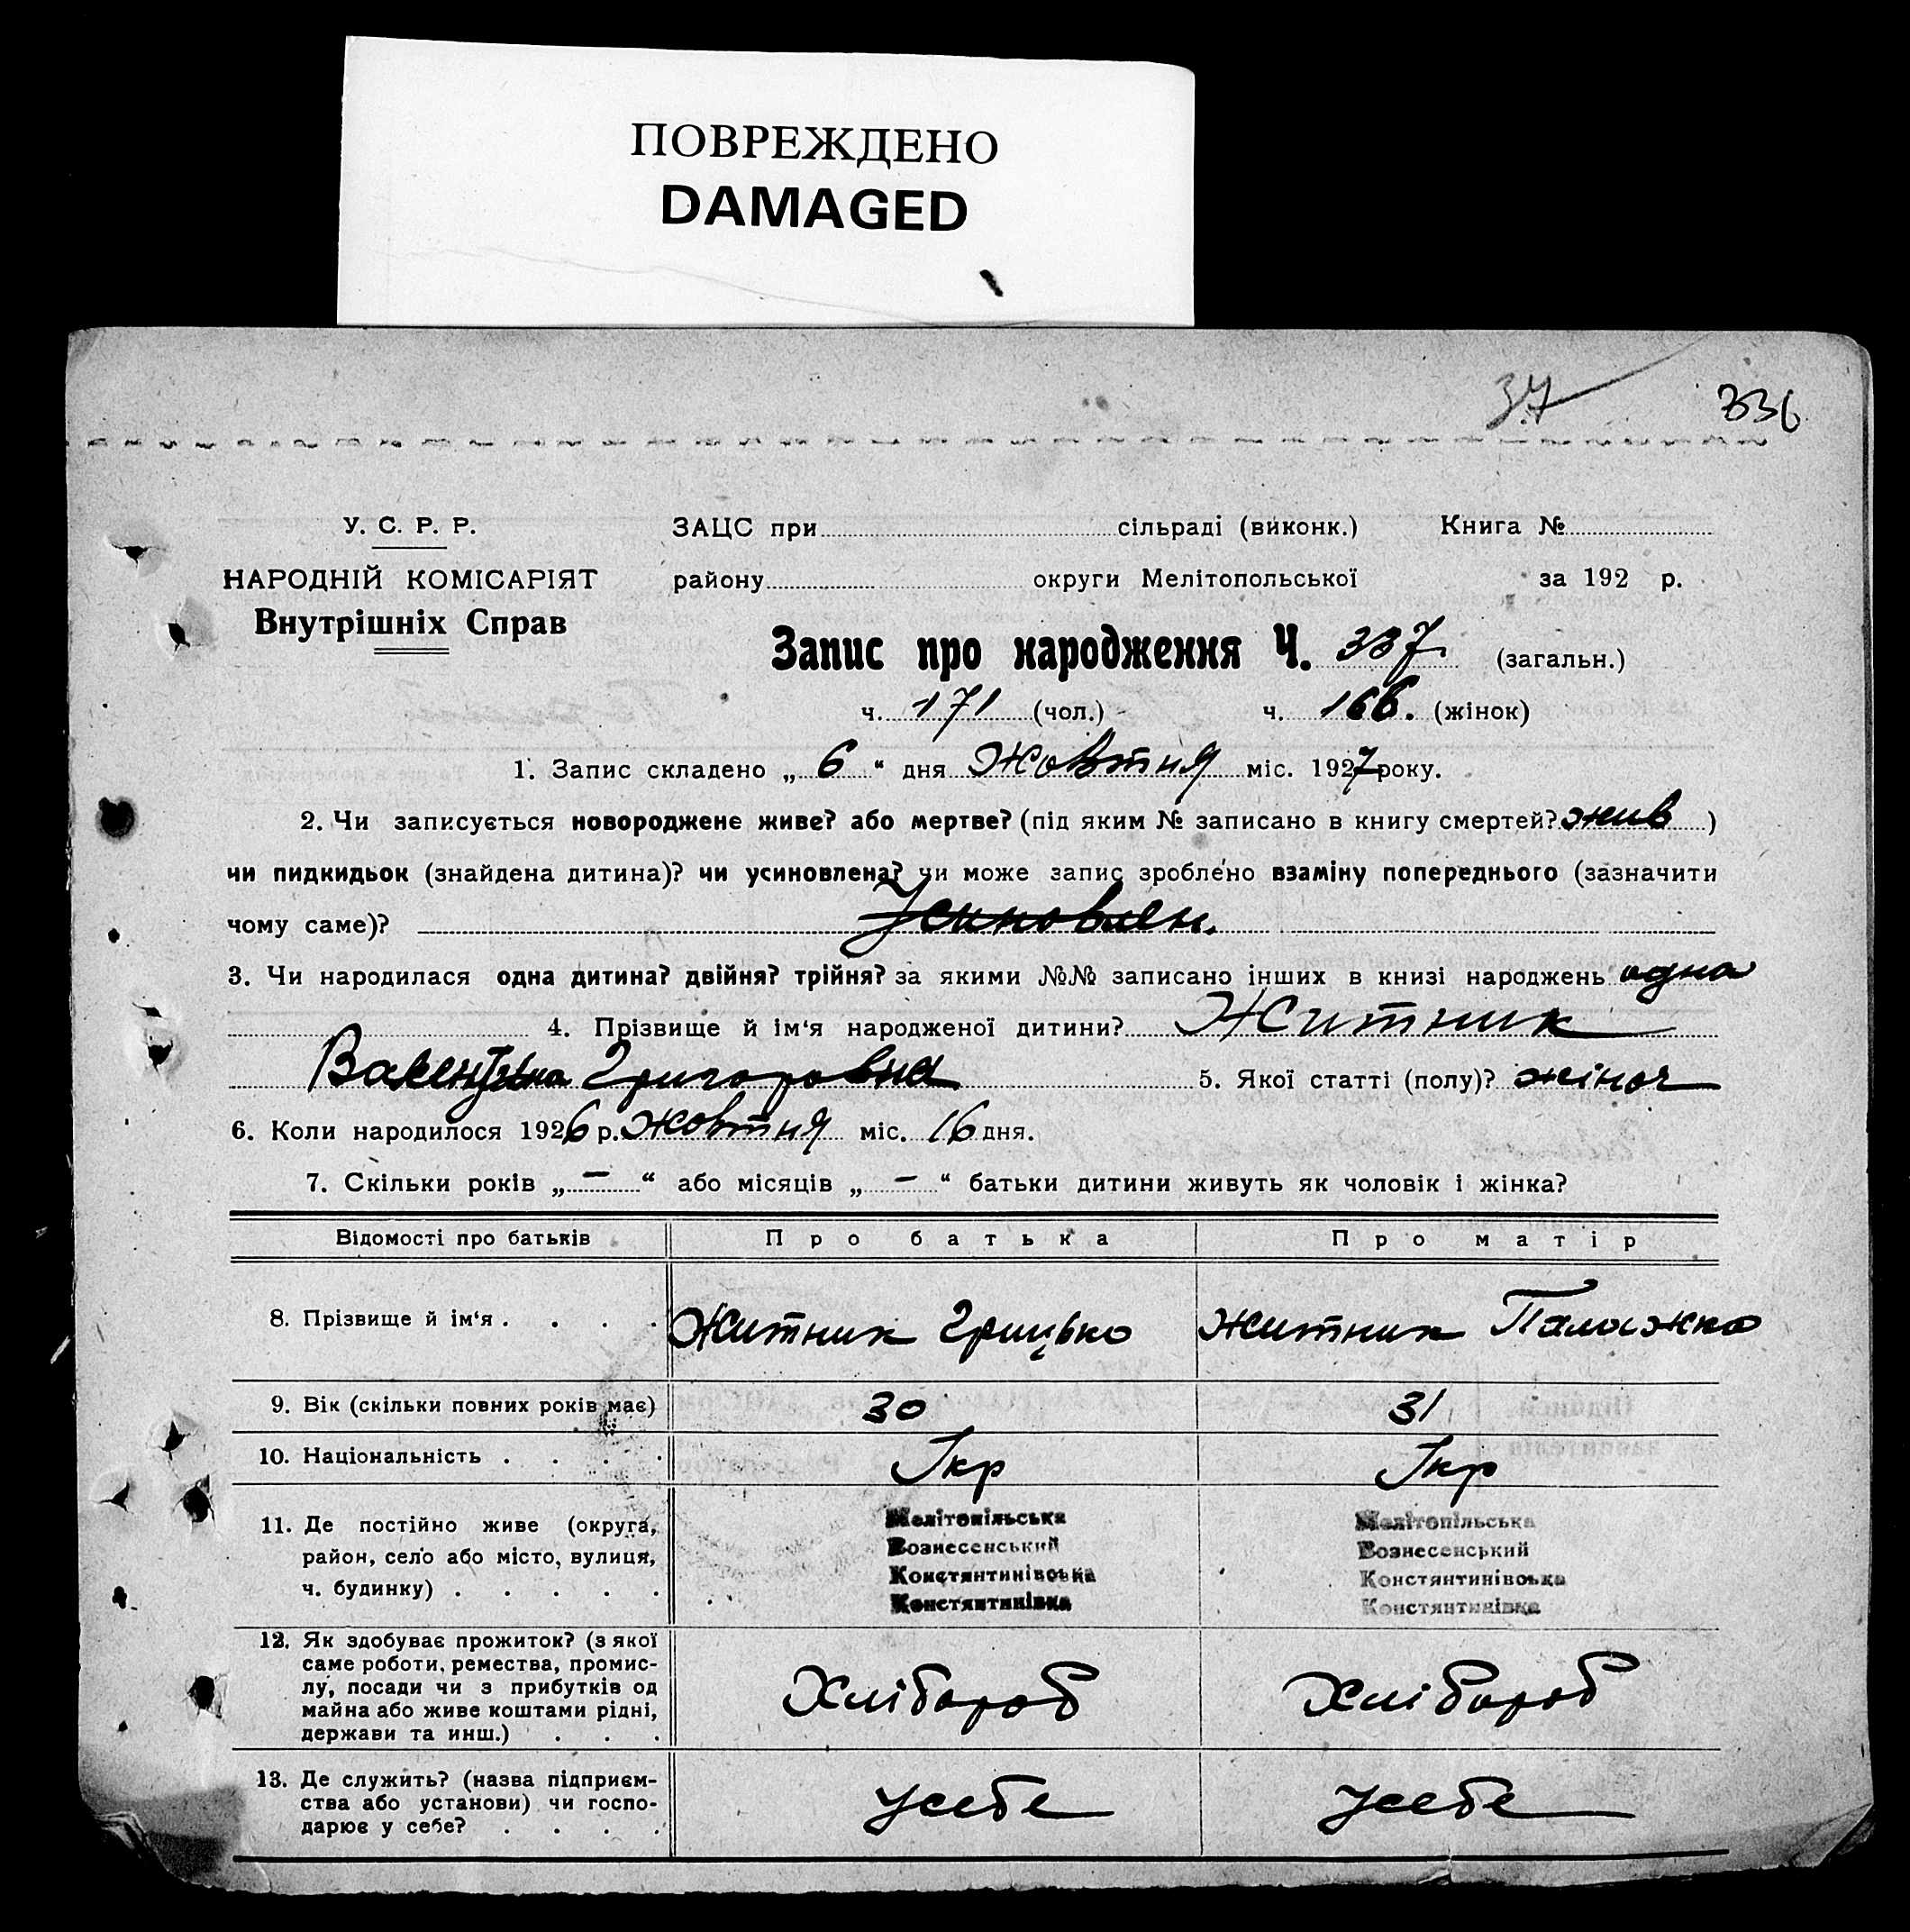 ПОВРЕЖДЕНО
DAMAGED
37 336
У. С. Р. Р.
НАРОДНІЙ КОМІСАРІЯТ
Внутрішніх Справ
ЗАЦС при сільраді (виконк.) Книга №
району округи Мелітопольської за 192 р.
Запис про народження Ч. 337 (загальн.)
ч. 171 (чол.) ч. 166. (жінок)
1. Запис складено „ 6 “ дня Жовтня міс. 1927 року.
2. Чи записується новороджене живе? або мертве? (під яким № записано в книгу смертей? жив )
чи пидкидьок (знайдена дитина)? чи усиновлена? чи може запис зроблено взаміну попереднього (зазначити
чому саме)? Усиновлен.
3. Чи народилася одна дитина? двійня? трійня? за якими №№ записано інших в книзі народжень одна
4. Прізвище й ім‘я народженої дитини? Житник
Валентина Григоровна 5. Якої статті (полу)? жіноч
6. Коли народилося 1926 р. Жовтня міс. 16 дня.
7. Скільки років „ — “ або місяців „ — “ батьки дитини живуть як чоловік і жінка?
Відомості про батьків Про батька Про матір
8. Прізвище й ім‘я . . . . Житник Грицько Житник Палажка
9. Вік (скільки повних років має) 30 31
10. Національність . . . . Укр Укр
11. Де постійно живе (округа,
район, село або місто, вулиця,
ч. будинку) . . . . .
Мелітопільська
Вознесенський
Констянтинівська
Констянтинівка
Мелітопільська
Вознесенський
Констянтинівська
Констянтинівка
12. Як здобуває прожиток? (з якої
саме роботи, ремества, промис-
лу, посади чи з прибутків од
майна або живе коштами рідні,
держави та инш.) . . .
Хлібороб Хлібороб
13. Де служить? (назва підприєм-
ства або установи) чи госпо-
дарює у себе? . . . .
усебе усебе